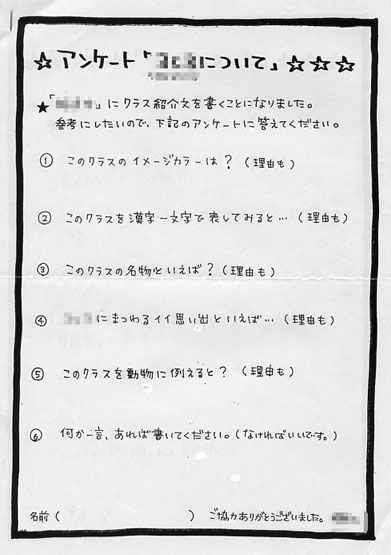 ☆アンケート「について」☆☆☆
★「」にクラス紹介文を書くことになりました。
参考にしたいので、下記のアンケートに答えてください。
① このクラスのイメージカラーは?(理由も)
② このクラスを漢字一文字で表してみると…(理由も)
③ このクラスの名物といえば?(理由も)
④ にまつわるイイ思い出といえば…(理由も)
⑤ このクラスを動物に例えると?(理由も)
⑥ 何か一言、あれば書いてください。(なければいいです。)
名前( ) ご協力ありがとうございました。